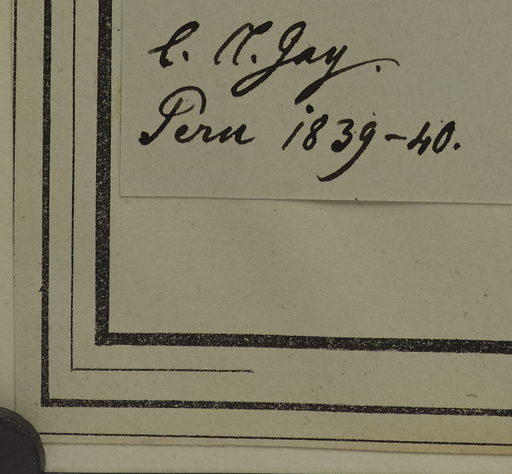 C. N. Gay.
Peru 1839-40.